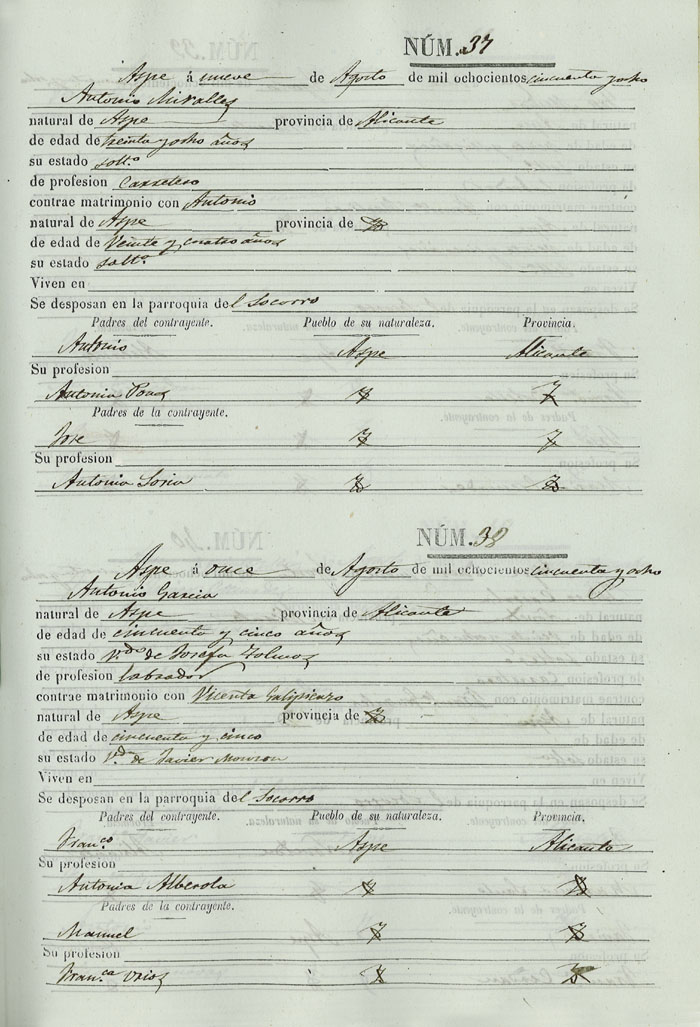 NÚM. 37
Aspe á nueve de Agosto de mil ochocientos cincuenta y ocho
Antonio Miralles
natural de Aspe provincia de Alicante
de edad de treinta y ocho años
su estado solt.o
de profesion Carretero
contrae matrimonio con Antonio
natural de Aspe provincia de
de edad de Veinte y cuatro años
su estado solt.a
Viven en
Se desposan en la parroquia del Socorro
Padres del contrayente. Pueblo de su naturaleza. Provincia.
Antonio Aspe Alicante
Su profesion
Antonia
Padres de la contrayente.
Jose
Su profesion
Antonia Soria
NÚM. 38
Aspe á once de Agosto de mil ochocientos cincuenta y ocho
Antonio Garcia
natural de Aspe provincia de Alicante
de edad de cincuenta y cinco años
su estado V.do de Josefa
de profesion labrador
contrae matrimonio con Vicenta
natural de Aspe provincia de
de edad de cincuenta y cinco
su estado V.da de Javier Monzon
Viven en
Se desposan en la parroquia del Socorro
Padres del contrayente. Pueblo de su naturaleza. Provincia.
Fran.co Aspe Alicante
Su profesion
Antonia Alberola
Padres de la contrayente.
Manuel
Su profesion
Fran.ca